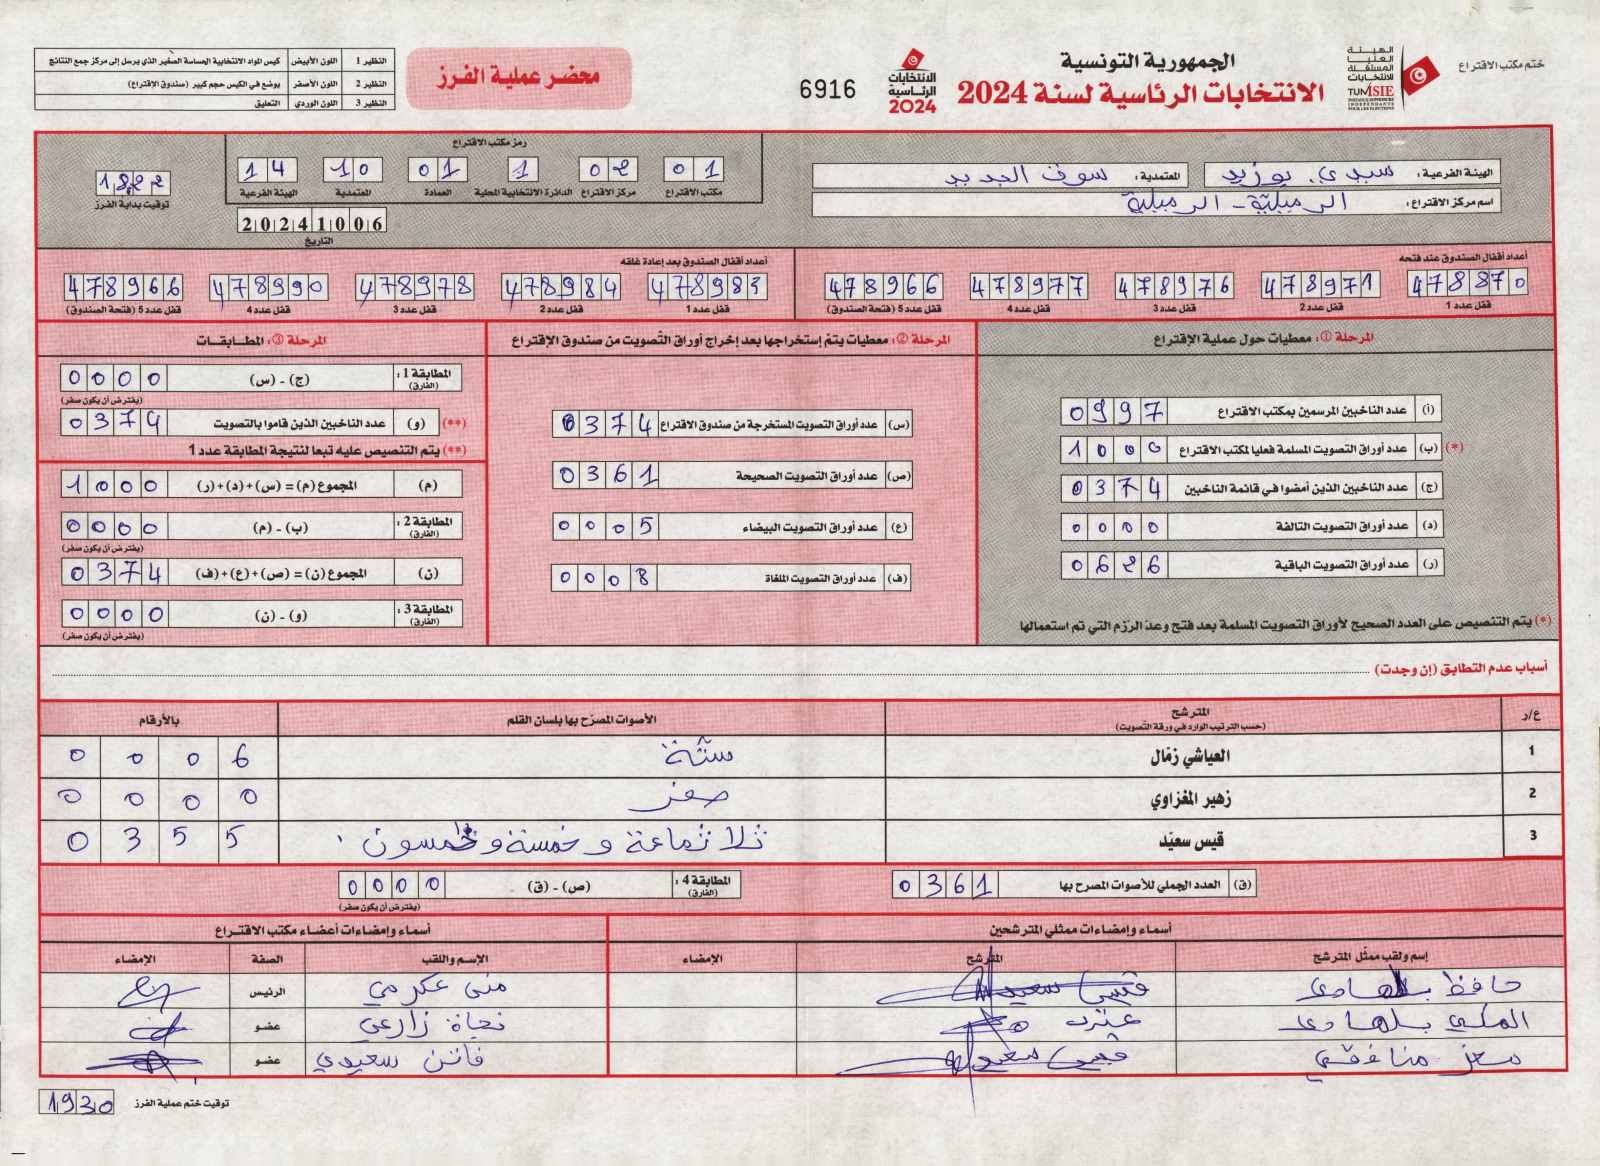 ختم مكتب الاقتراع
الهيئة العليا المستقلة للانتخابات
TUNISIE
الجمهورية التونسية
الانتخابات الرئاسية لسنة 2024
الانتخابات الرئاسية 2024
6916
محضر عملية الفرز
النظير 1 اللون الأبيض كيس المواد الانتخابية الحساسة الصغير الذي يرسل إلى مركز جمع النتائج
النظير 2 اللون الأصفر يوضع في الكيس حجم كبير (صندوق الإقتراع)
النظير 3 اللون الوردي التعليق
الهيئة الفرعية : سيدي بوزيد المعتمدية : سوق الجديد
اسم مركز الاقتراع : الرميلية - الرميلية
رمز مكتب الاقتراع
01 02 1 01 10 14
مكتب الاقتراع مركز الاقتراع الدائرة الانتخابية المحلية العمادة المعتمدية الهيئة الفرعية
20241006
التاريخ
1822
توقيت بداية الفرز
أعداد أقفال الصندوق عند فتحه
478870 478971 478976 478977 478966
قفل عدد 1 قفل عدد 2 قفل عدد 3 قفل عدد 4 قفل عدد 5 (فتحة الصندوق)
أعداد أقفال الصندوق بعد إعادة غلقه
478983 478984 478978 478990 478966
قفل عدد 1 قفل عدد 2 قفل عدد 3 قفل عدد 4 قفل عدد 5 (فتحة الصندوق)
المرحلة ①: معطيات حول عملية الإقتراع
(أ) عدد الناخبين المرسمين بمكتب الاقتراع 0997
(*) (ب) عدد أوراق التصويت المسلمة فعليا لمكتب الاقتراع 1000
(ج) عدد الناخبين الذين أمضوا في قائمة الناخبين 0374
(د) عدد أوراق التصويت التالفة 0000
(ر) عدد أوراق التصويت الباقية 0626
(*) يتم التنصيص على العدد الصحيح لأوراق التصويت المسلمة بعد فتح وعدّ الرّزم التي تم استعمالها
المرحلة ②: معطيات يتمّ إستخراجها بعد إخراج أوراق التّصويت من صندوق الإقتراع
(س) عدد أوراق التصويت المستخرجة من صندوق الاقتراع 0374
(ص) عدد أوراق التصويت الصحيحة 0361
(ع) عدد أوراق التصويت البيضاء 0005
(ف) عدد أوراق التصويت الملغاة 0008
المرحلة ③: المطابقات
المطابقة 1 : (الفارق) (ج) - (س) 0000
(يفترض أن يكون صفر)
(**) (و) عدد الناخبين الذين قاموا بالتصويت 0374
(**) يتم التنصيص عليه تبعا لنتيجة المطابقة عدد 1
(م) المجموع (م) = (س)+(د)+(ر) 1000
المطابقة 2 : (الفارق) (ب) - (م) 0000
(يفترض أن يكون صفر)
(ن) المجموع (ن) = (ص)+(ع)+(ف) 0374
المطابقة 3 : (الفارق) (و) - (ن) 0000
(يفترض أن يكون صفر)
أسباب عدم التطابق (إن وجدت)
ع/ر المترشح (حسب الترتيب الوارد في ورقة التّصويت) الأصوات المصرّح بها بلسان القلم بالأرقام
1 العياشي زمّال ستة 0006
2 زهير المغزاوي صفر 0000
3 قيس سعيّد ثلاثمائة وخمسة وخمسون 0355
(ق) العدد الجملي للأصوات المصرح بها 0361
المطابقة 4 : (الفارق) (ص) - (ق) 0000
(يفترض أن يكون صفر)
أسماء وإمضاءات ممثلي المترشحين
إسم ولقب ممثّل المترشح المترشح الإمضاء
حافظ بلهادي قيس سعيد
المكي بلهادي
معز منافقي قيس سعيد
أسماء وإمضاءات أعضاء مكتب الاقتراع
الإسم واللقب الصفة الإمضاء
منى عكرمي الرئيس
نجاة زارعي عضو
فاتن سعيدي عضو
توقيت ختم عملية الفرز 1930